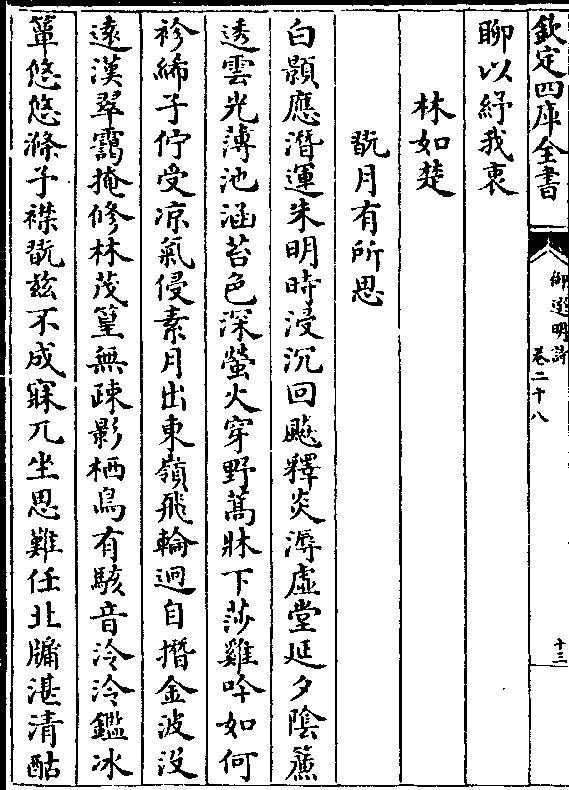 欽定四庫全書
御選明詩
卷二十八
十三
聊以紓我衷
林如楚
翫月有所思
白顥應潛運朱明時浸沉回飈釋炎溽虛堂延夕陰簾
透雲光薄池涵苔色深螢火穿野蔦牀下莎雞吟如何
袗絺子佇受凉氣侵素月出東嶺飛輪迥自撍金波没
遠漢翠靄掩修林茂篁無疎影栖鳥有駭音泠泠鑑冰
簟悠悠滌子襟翫玆不成寐兀坐思難任北牖湛清酤